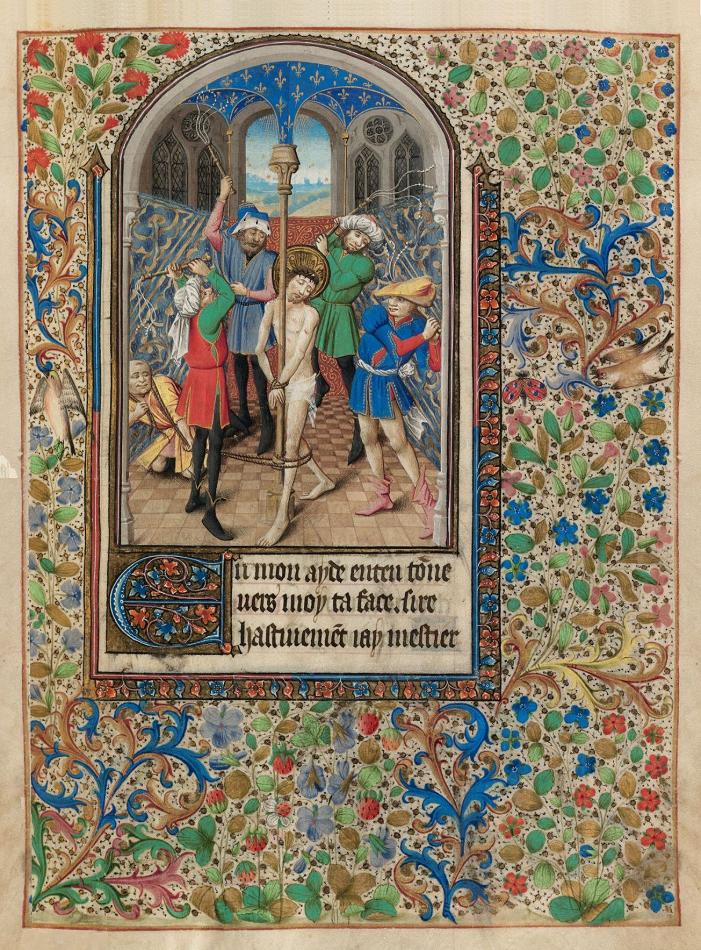 En mon ayde enten tōne
uers moy ta face. sire
hastiuemēt iay mestier